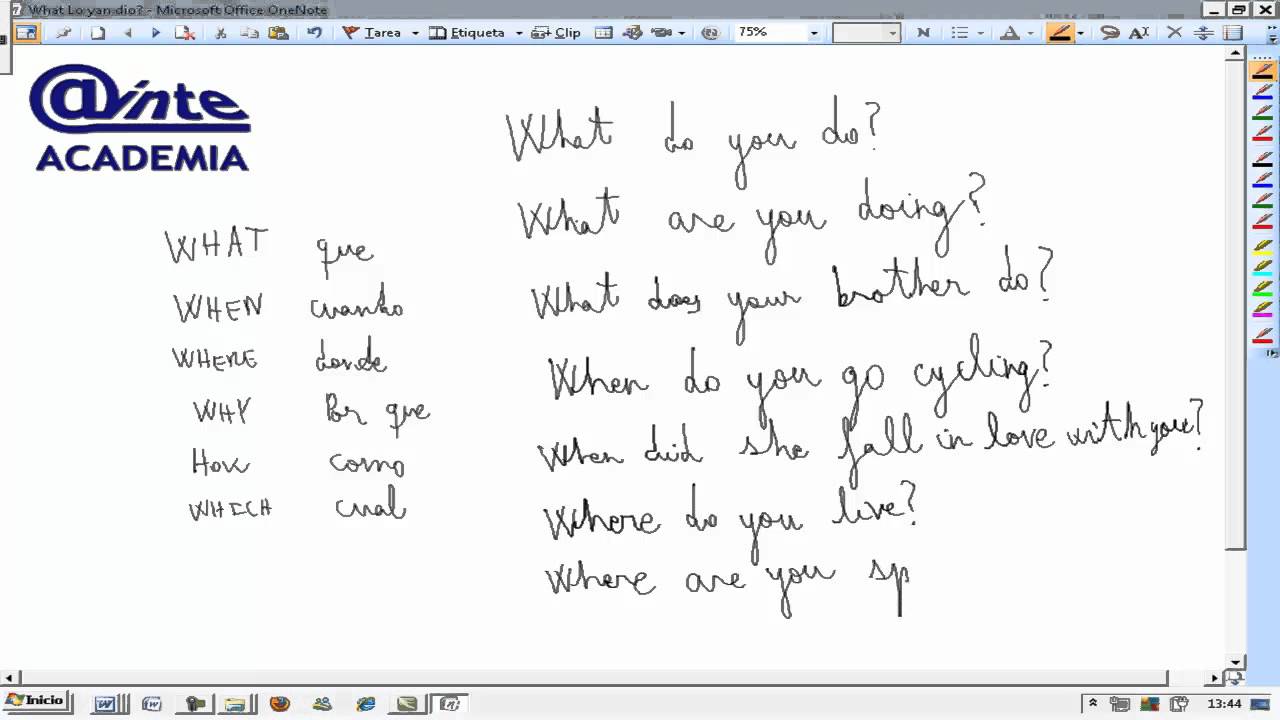 What Lo yan dio? - Microsoft Office OneNote
Tarea Etiqueta Clip 75% N
@inte
ACADEMIA
WHAT que
WHEN cuando
WHERE donde
WHY Por que
How como
WHICH cual
What do you do?
What are you doing?
What does your brother do?
When do you go cycling?
When did she fall in love with you?
Where do you live?
Where are you sp
Inicio 13:44